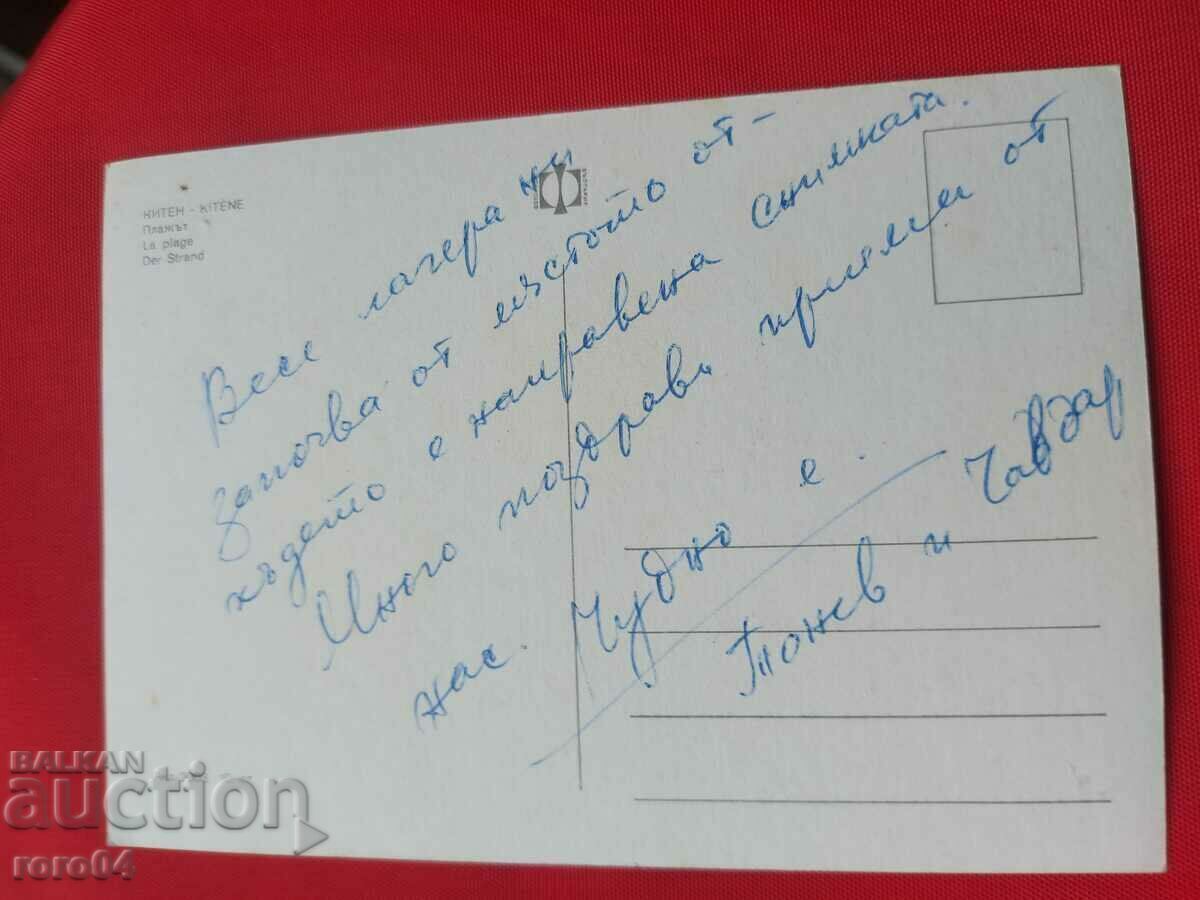 КИТЕН - KITENE
Плажът
La plage
Der Strand
Весе лагера ни
започва от мястото от-
където е направена снимката.
Много поздрави приеми от
нас. Чудно е.
Тонев и Чавдар
BALKAN
auction
roro04